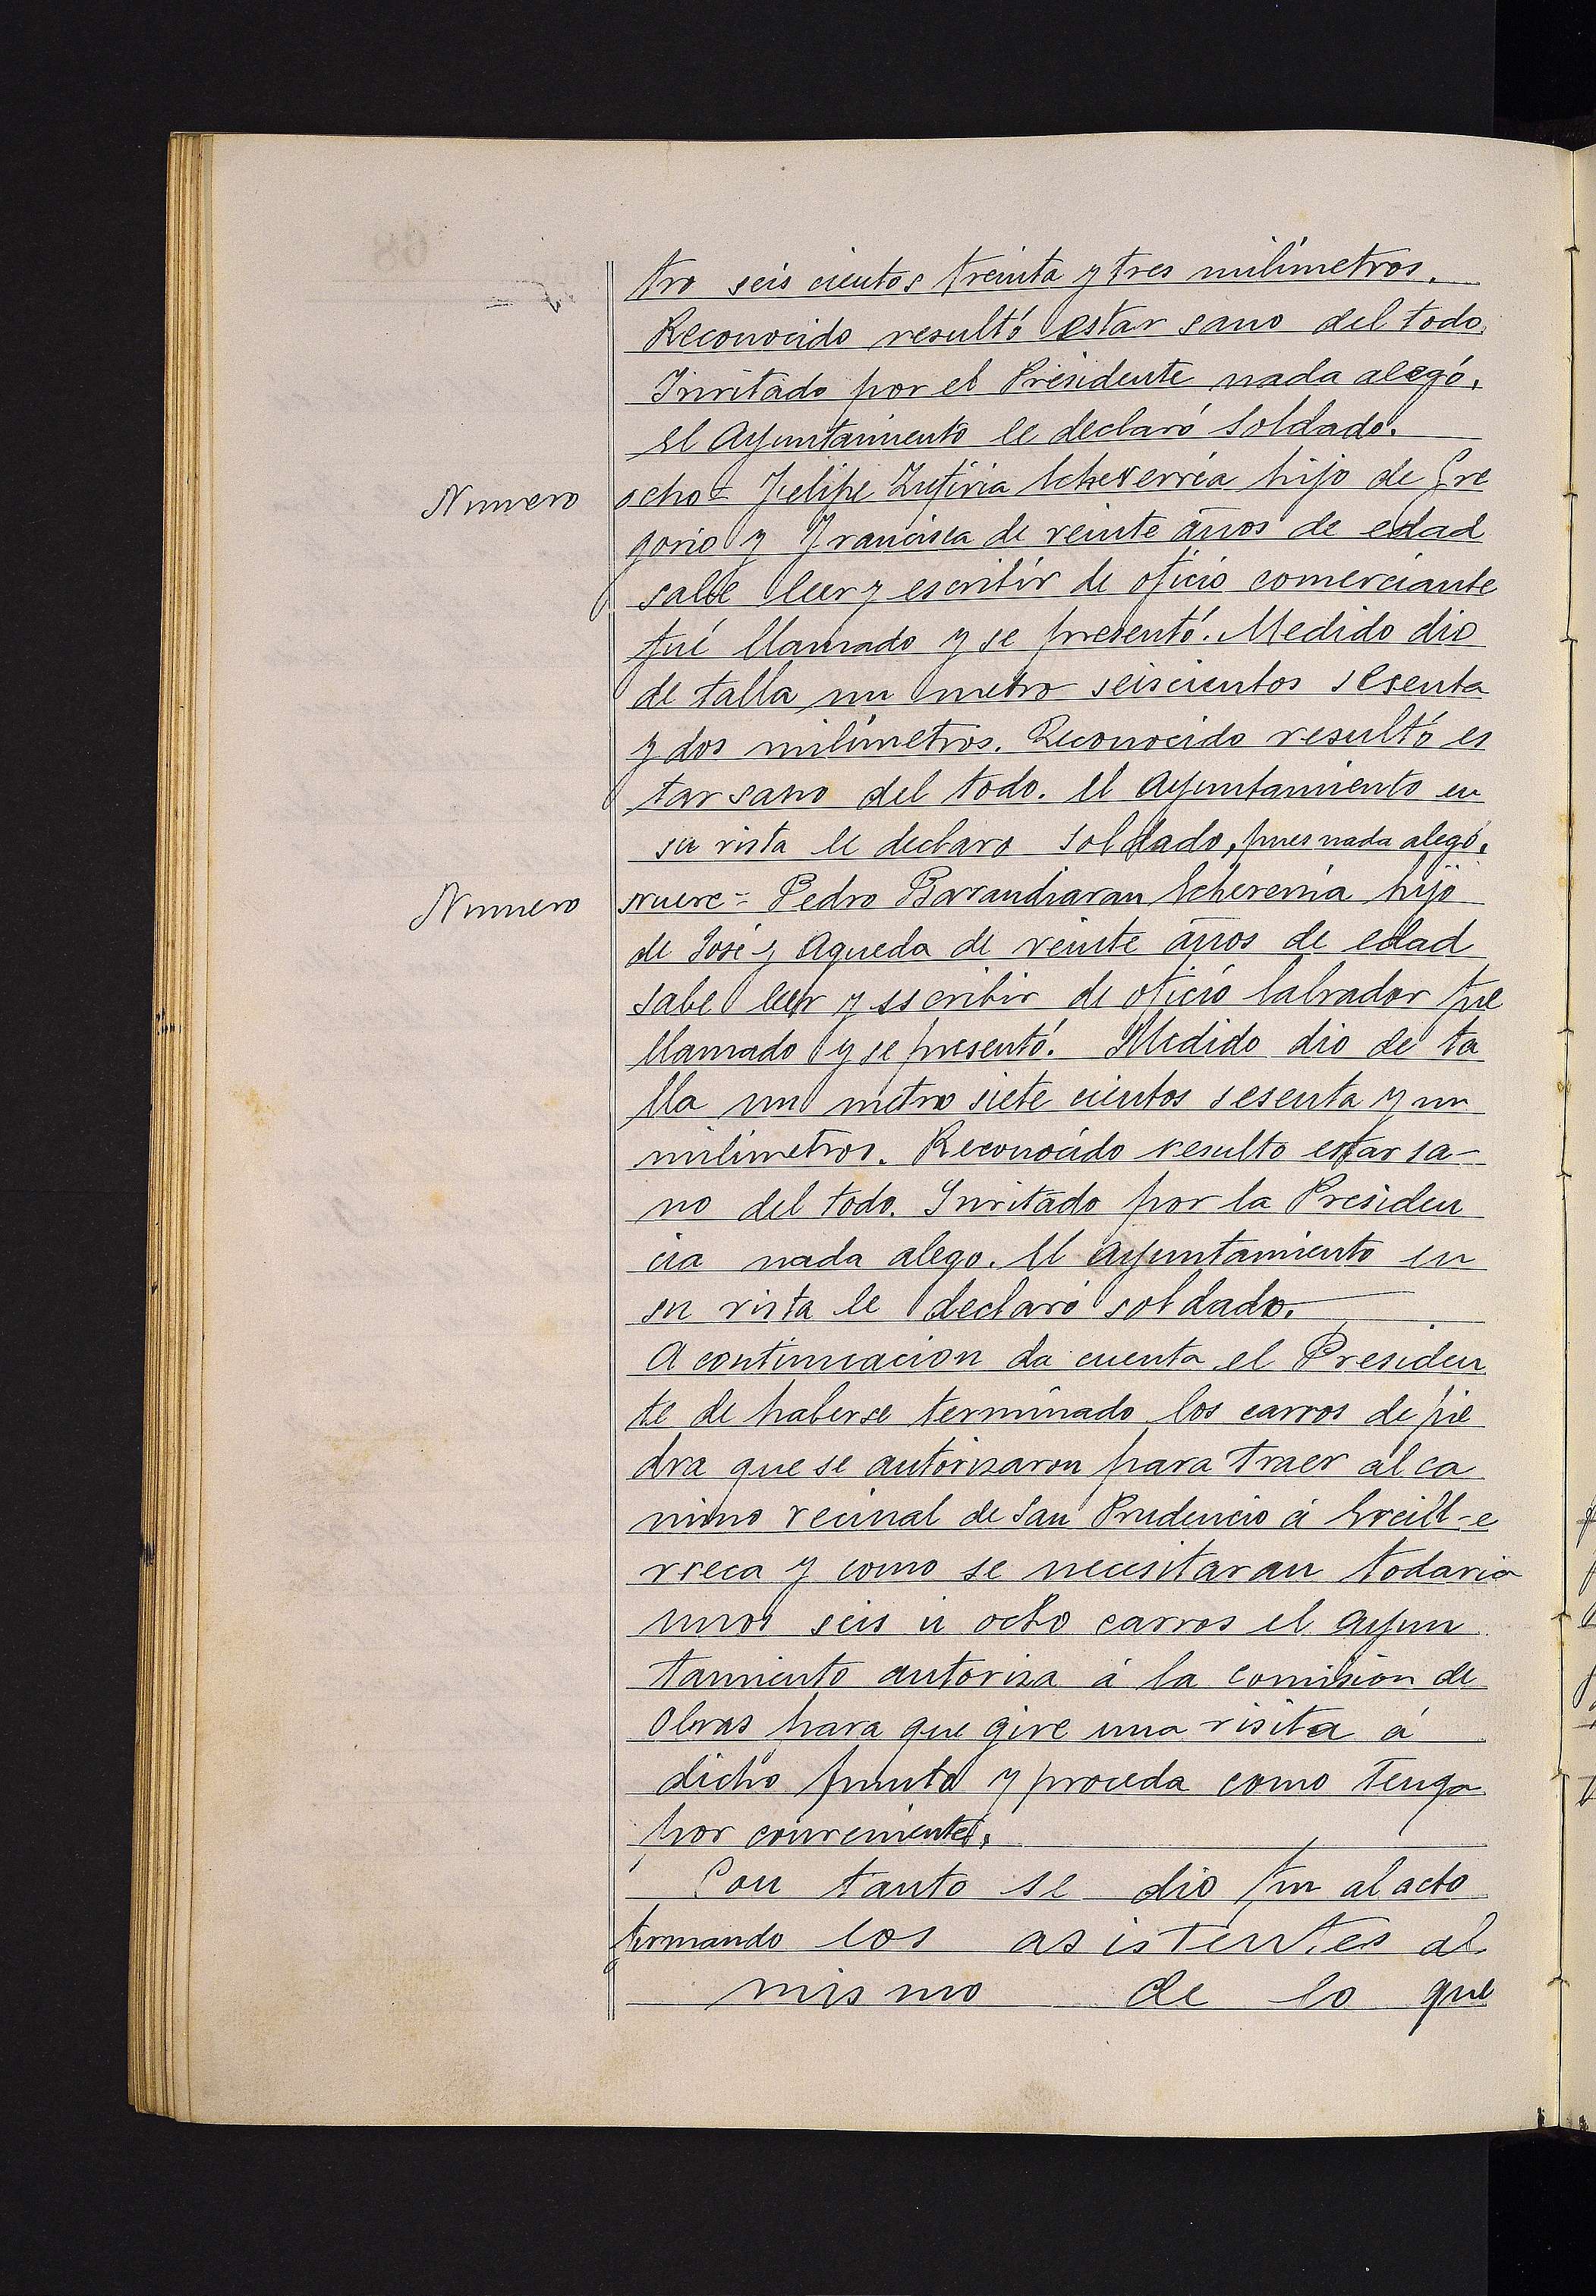 tro seis cientos treinta y tres milímetros.
Reconocido resultó estar sano del todo.
Invitado por el Presidente nada alegó.
El Ayuntamiento le declaró soldado.
Numero ocho = Felipe Zufiria Echeverría hijo de Gre
gorio y Francisca de veinte años de edad
sabe leer y escribir de oficio comerciante
fué llamado y se presentó. Medido dio
de talla un metro seiscientos sesenta
y dos milímetros. Reconocido resultó es
tar sano del todo. El Ayuntamiento en
su vista le declaro soldado, pues nada alegó.
Numero nueve = Pedro Barandiaran Echeverria hijo
de José y Agueda de veinte años de edad
sabe leer y escribir de oficio labrador fue
llamado y se presentó. Medido dio de ta
lla un metro siete cientos sesenta y un
milímetros. Reconocido resulto estar sa-
no del todo. Invitado por la Presiden
cia nada alego. El Ayuntamiento en
su vista le declaró soldado.
A continuacion da cuenta el Presiden
te de haberse terminado los carros de pie
dra que se autorizaron para traer al ca
mino vecinal de San Prudencio á
rreca y como se necesitaran todavia
unos seis ú ocho carros el Ayun
tamiento autoriza á la Comision de
Obras para que gire una visita á
dicho punto y proceda como tenga
por conveniente.
Con tanto se dio fin al acto
firmando los asistentes al
mismo de lo que